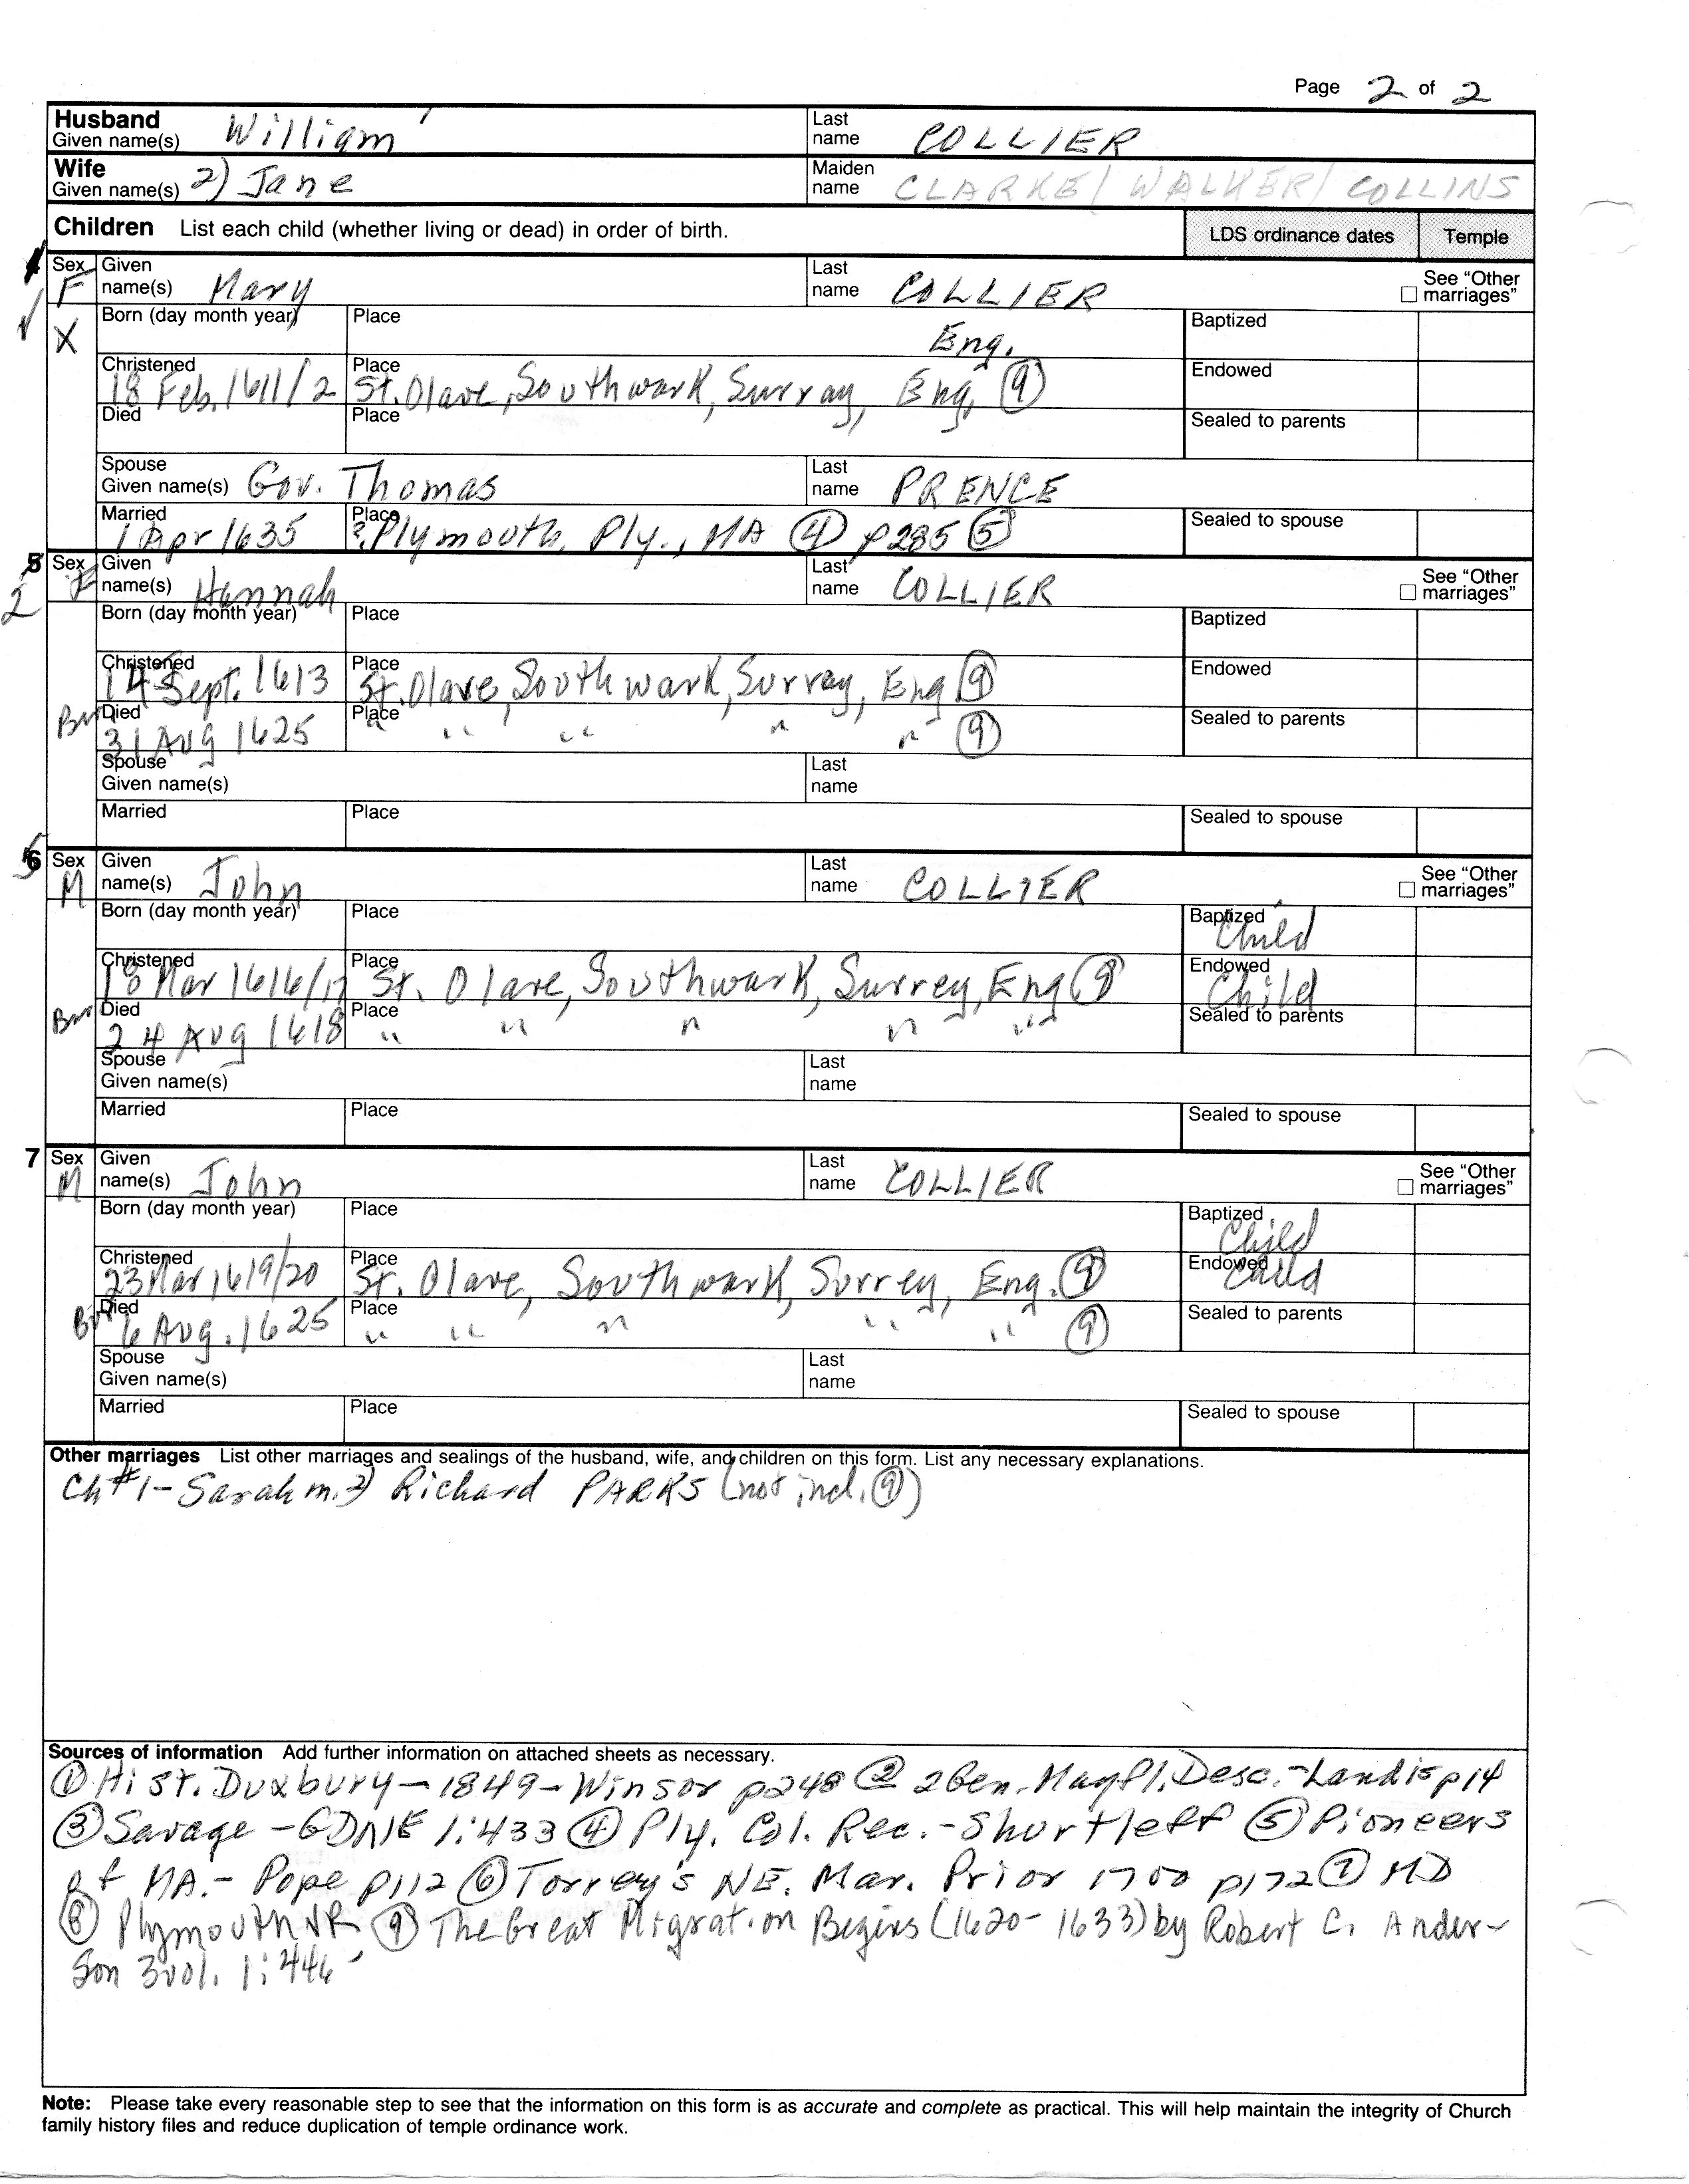 Page 2 of 2
Husband Given name(s) William Last name COLLIER
Wife Given name(s) 2) Jane Maiden name CLARKE/ WALKER/ COLLINS
Children List each child (whether living or dead) in order of birth. LDS ordinance dates Temple
Sex F Given name(s) Mary Last name COLLIER See "Other marriages"
X Born (day month year) Place Eng. Baptized
Christened 18 Feb. 1611/2 Place St. Olave, Southwark, Surray, Eng, 9 Endowed
Died Place Sealed to parents
Spouse Given name(s) Gov. Thomas Last name PRENCE
Married 1 Apr 1635 Place ?Plymouth, Ply., MA 4 p285 5 Sealed to spouse
5 2 Sex F Given name(s) Hannah Last name COLLIER See "Other marriages"
Born (day month year) Place Baptized
Christened 14 Sept. 1613 Place St. Olave, Southwark, Surray, Eng 9 Endowed
Bur Died 31 Aug 1625 Place " " " " " 9 Sealed to parents
Spouse Given name(s) Last name
Married Place Sealed to spouse
6 5 Sex M Given name(s) John Last name COLLIER See "Other marriages"
Born (day month year) Place Baptized Child
Christened 18 Mar 1616/17 Place St. Olave, Southwark, Surrey, Eng 9 Endowed Child
Bur Died 24 Aug 1618 Place " " " " " Sealed to parents
Spouse Given name(s) Last name
Married Place Sealed to spouse
7 Sex M Given name(s) John Last name COLLIER See "Other marriages"
Born (day month year) Place Baptized Child
Christened 23 Mar 1619/20 Place St. Olave, Southwark, Surrey, Eng. 9 Endowed Child
Bur Died 6 Aug. 1625 Place " " " " " 9 Sealed to parents
Spouse Given name(s) Last name
Married Place Sealed to spouse
Other marriages List other marriages and sealings of the husband, wife, and children on this form. List any necessary explanations.
Ch #1 - Sarah m. 2) Richard PARKS (not incl. 9)
Sources of information Add further information on attached sheets as necessary.
① Hist. Duxbury - 1849 - Winsor p248 ② 2 Gen. Mayfl. Desc. - Landis p14
③ Savage - GDNE 1:433 ④ Ply. Col. Rec. - Shurtleff ⑤ Pioneers
of MA. - Pope p112 ⑥ Torrey's NE. Mar. Prior 1700 p172 ⑦ MD
⑧ Plymouth VR ⑨ The Great Migration Begins (1620-1633) by Robert C. Ander-
son 3 vol. 1:446
Note: Please take every reasonable step to see that the information on this form is as accurate and complete as practical. This will help maintain the integrity of Church
family history files and reduce duplication of temple ordinance work.